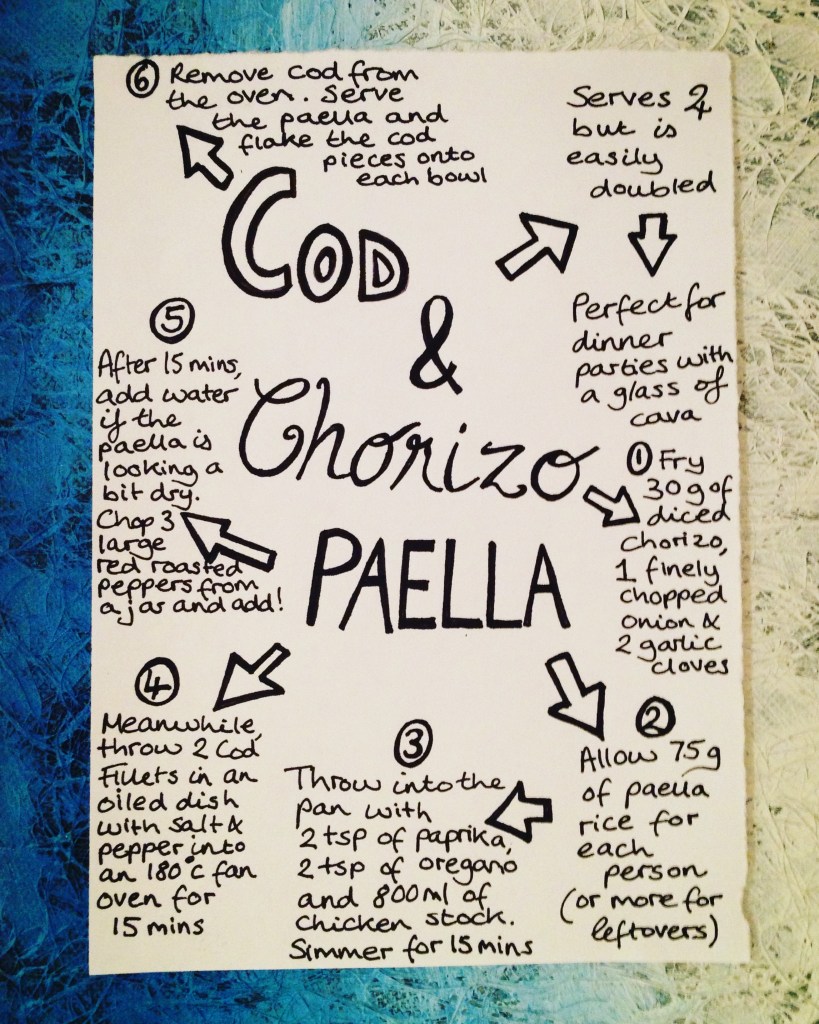 COD
&
Chorizo
PAELLA
Serves
but is
easily
doubled
Perfect for
dinner
parties with
a glass of
cava
① Fry
30g of
diced
chorizo,
1 finely
chopped
onion &
2 garlic
cloves
②
Allow 75g
of paella
rice for
each
person
(or more for
leftovers)
③
Throw into the
pan with
2 tsp of paprika,
2 tsp of oregano
and 800ml of
chicken stock.
Simmer for 15 mins
④
Meanwhile,
throw 2 Cod
Fillets in an
oiled dish
with salt &
pepper into
an 180°c fan
oven for
15 mins
⑤
After 15 mins,
add water
if the
paella is
looking a
bit dry.
Chop 3
large
red roasted
peppers from
a jar and add!
⑥ Remove cod from
the oven. Serve
the paella and
flake the cod
pieces onto
each bowl